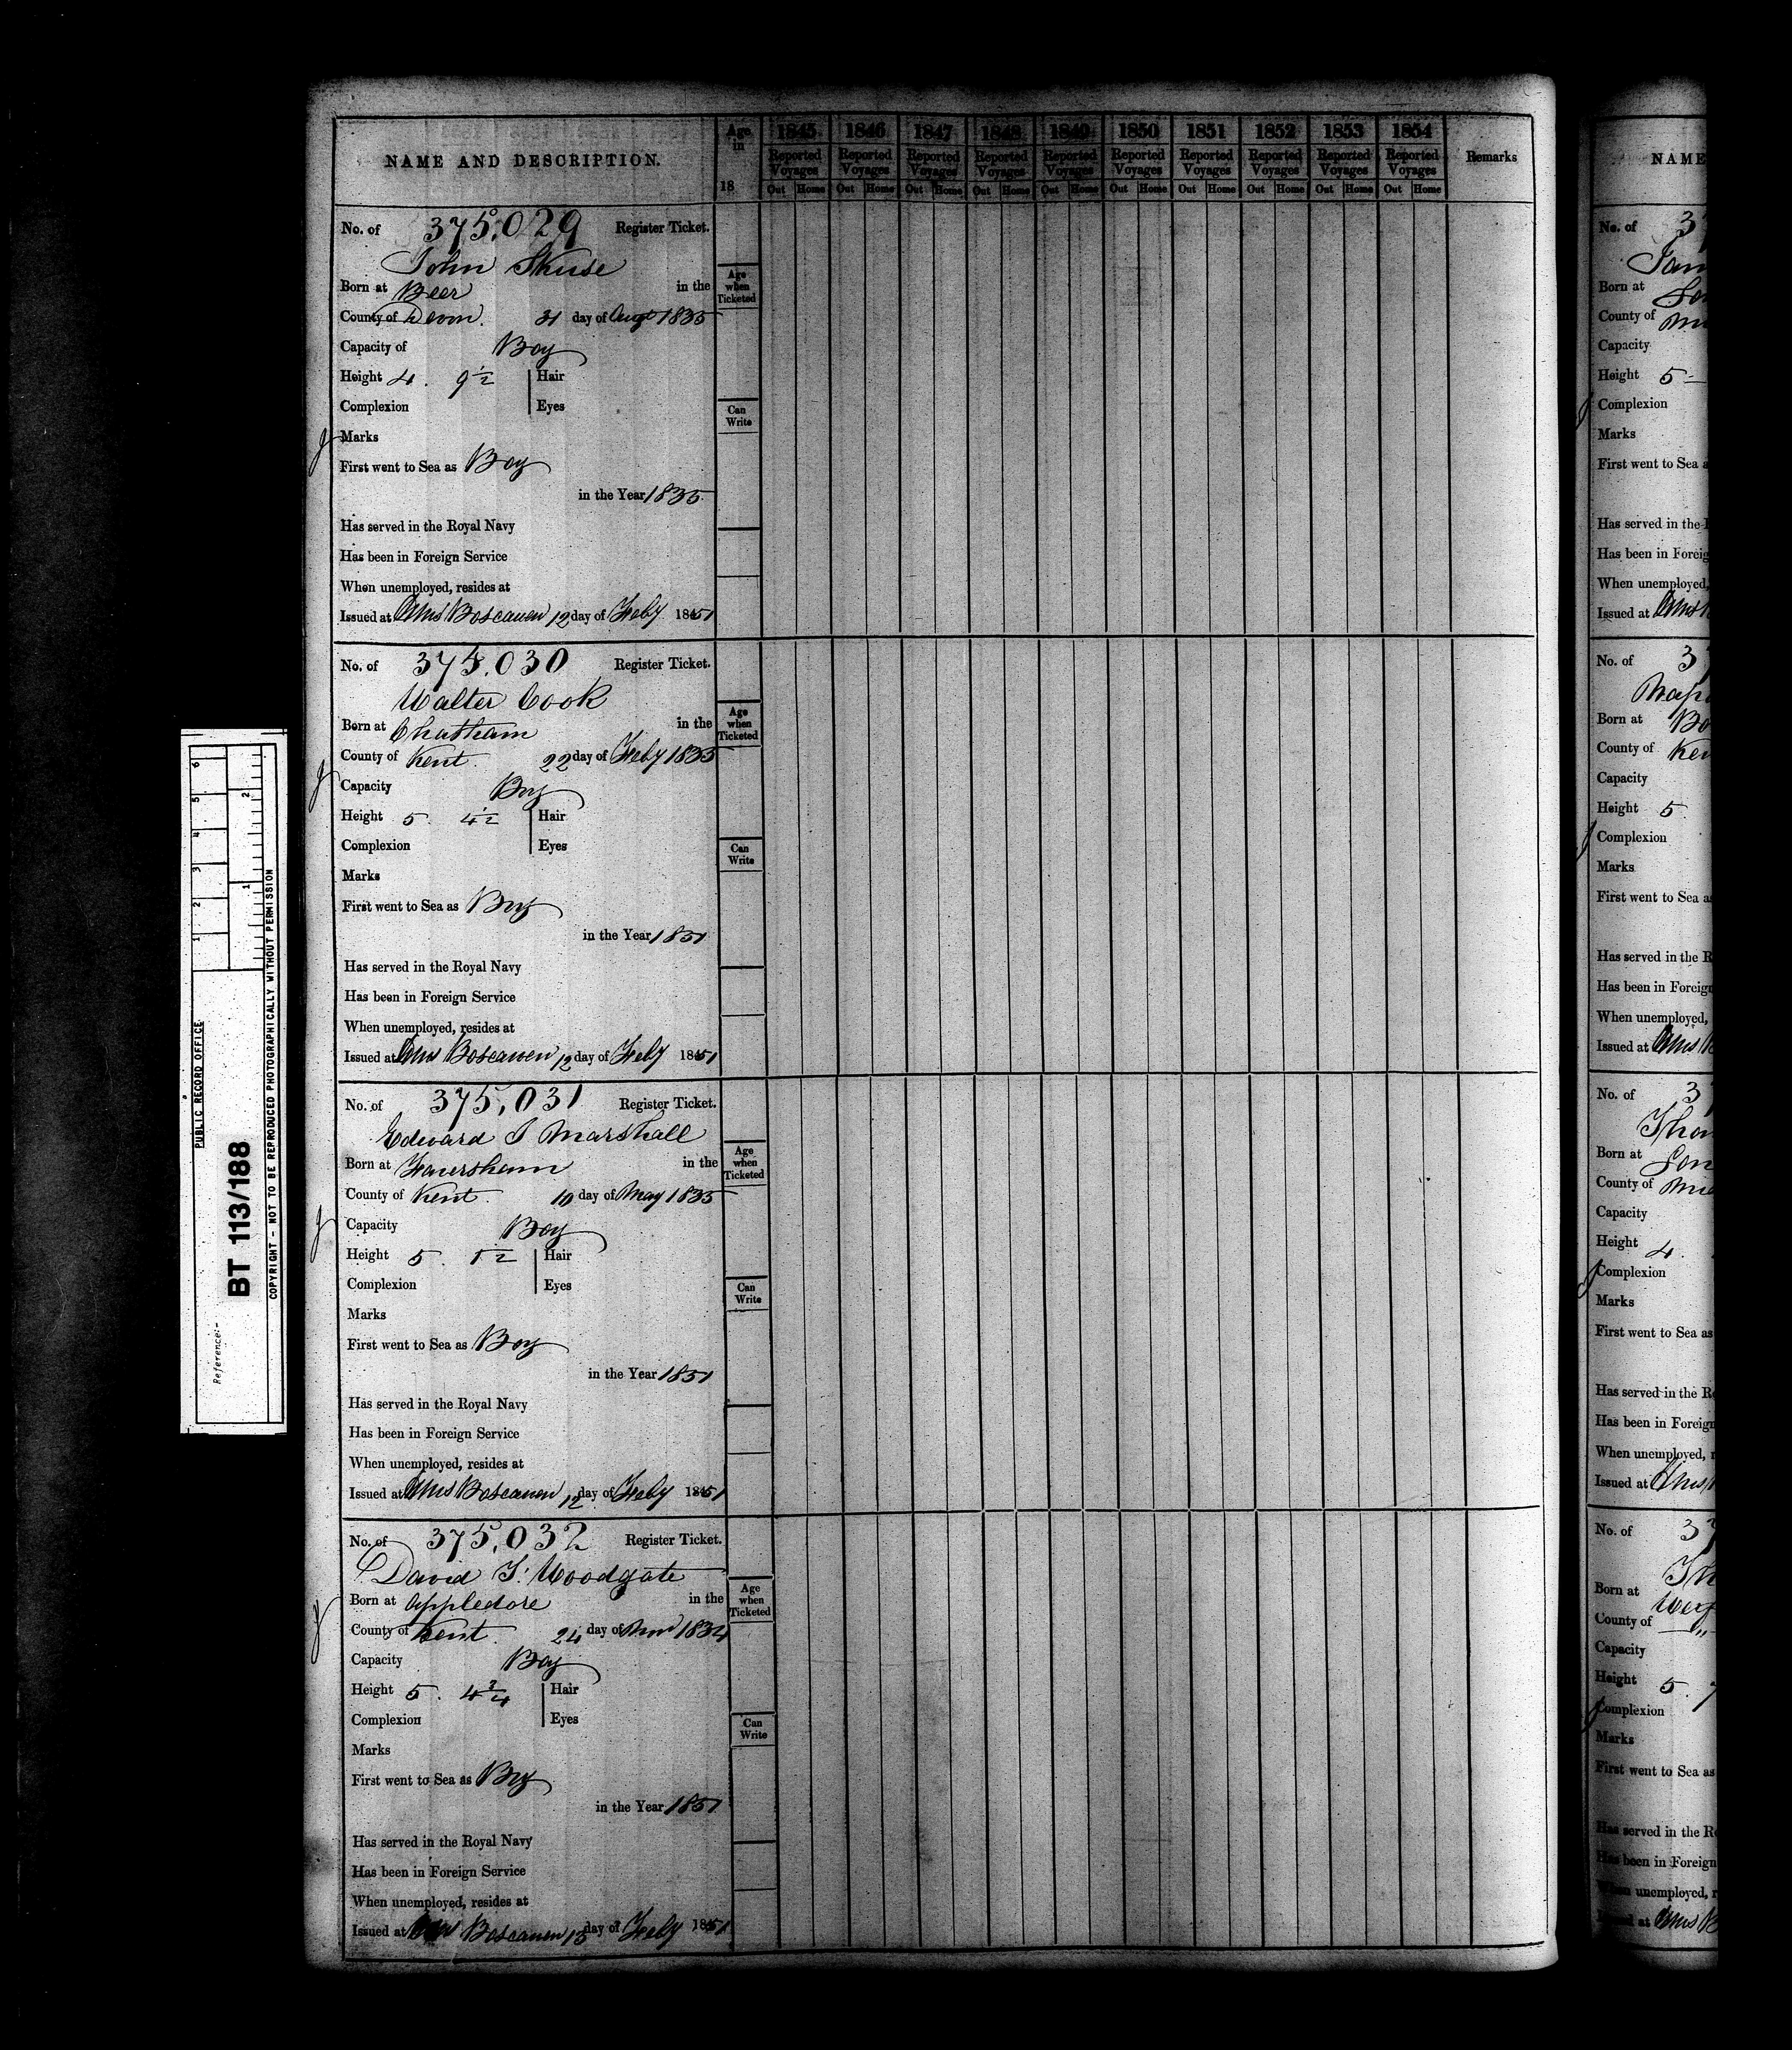 NAME AND DESCRIPTION.
Age in 18
1845 1846 1847 1848 1849 1850 1851 1852 1853 1854
Reported Voyages Reported Voyages Reported Voyages Reported Voyages Reported Voyages Reported Voyages Reported Voyages Reported Voyages Reported Voyages Reported Voyages
Out Home Out Home Out Home Out Home Out Home Out Home Out Home Out Home Out Home Out Home
Remarks
No. of 375,029 Register Ticket.
John Skuse
Born at Beer in the
County of Devon. 31 day of Augt 1835
Capacity of Boy
Height 4. 9 1/2 Hair
Complexion Eyes
Marks
First went to Sea as Boy
in the Year 1835
Has served in the Royal Navy
Has been in Foreign Service
When unemployed, resides at
Issued at Boscawen 12 day of Feby 1851
Age when Ticketed
Can Write
No. of 375,030 Register Ticket.
Walter Cook
Born at Chatham in the
County of Kent. 22 day of Feby 1835
Capacity Boy
Height 5. 4 1/2 Hair
Complexion Eyes
Marks
First went to Sea as Boy
in the Year 1851
Has served in the Royal Navy
Has been in Foreign Service
When unemployed, resides at
Issued at Boscawen 12 day of Feby 1851
Age when Ticketed
Can Write
No. of 375,031 Register Ticket.
Edward J Marshall
Born at Faversham in the
County of Kent. 10 day of May 1835
Capacity Boy
Height 5. 1 1/2 Hair
Complexion Eyes
Marks
First went to Sea as Boy
in the Year 1851
Has served in the Royal Navy
Has been in Foreign Service
When unemployed, resides at
Issued at Boscawen 12 day of Feby 1851
Age when Ticketed
Can Write
No. of 375,032 Register Ticket.
David J. Woodgate
Born at Appledore in the
County of Kent. 24 day of Novr 1834
Capacity Boy
Height 5. 4 3/4 Hair
Complexion Eyes
Marks
First went to Sea as Boy
in the Year 1851
Has served in the Royal Navy
Has been in Foreign Service
When unemployed, resides at
Issued at Boscawen 13 day of Feby 1851
Age when Ticketed
Can Write
PUBLIC RECORD OFFICE
1 2 3 4 5 6
1 2
Reference:-
BT 113/188
COPYRIGHT - NOT TO BE REPRODUCED PHOTOGRAPHICALLY WITHOUT PERMISSION
NAME
No. of 37
Born at
County of
Capacity
Height 5
Complexion
Marks
First went to Sea
Has served in the
Has been in
When unemployed,
Issued at
No. of 37
Born at
County of
Capacity
Height 5
Complexion
Marks
First went to Sea
Has served in the
Has been in
When unemployed,
Issued at
No. of 37
Born at
County of
Capacity
Height 4.
Complexion
Marks
First went to Sea as
Has served in the
Has been in
When unemployed,
Issued at
No. of 37
Born at
County of
Capacity
Height 5. 7
Complexion
Marks
First went to Sea as
Has served in the
Has been in Foreign
When unemployed,